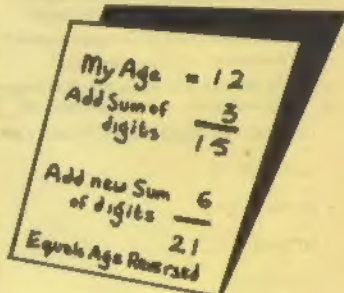 My Age = 12
Add Sum of 3
digits
15
Add new Sum 6
of digits
21
Equals Age Reversed